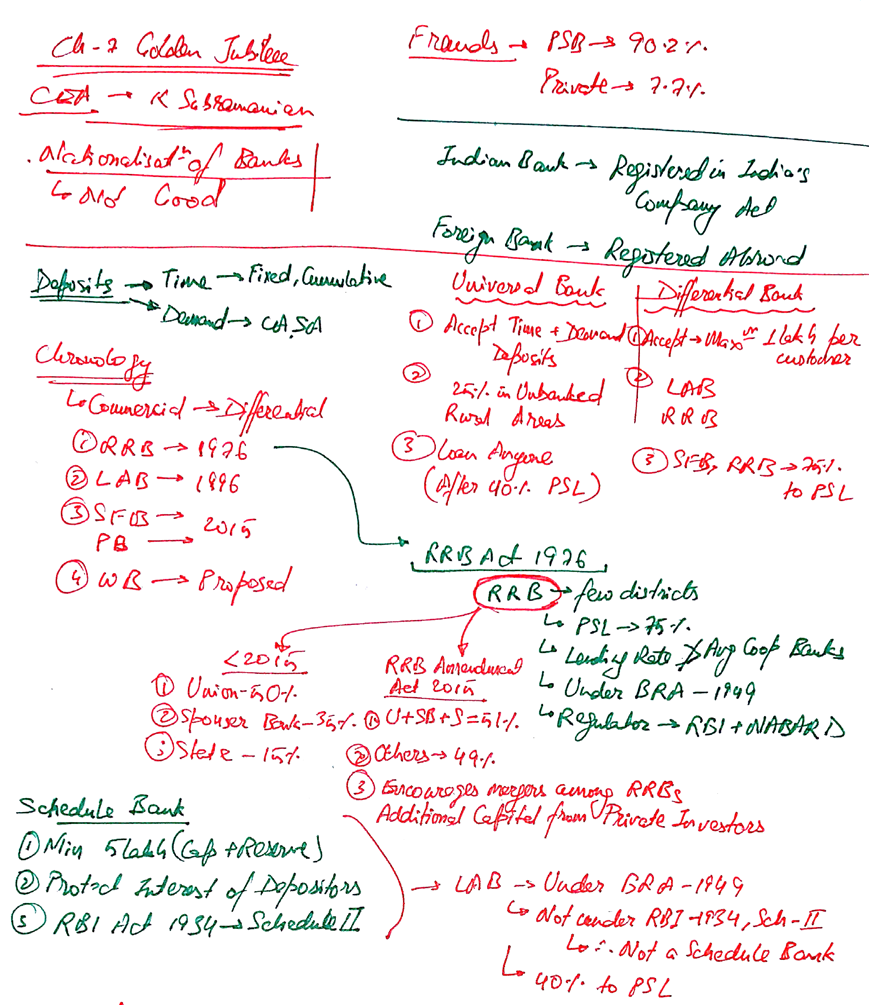 Ch-7 Golden Jubilee
CEA → K Subramanian
Nationalisatn of Banks
↳ Not Good
Frauds → PSB → 90.2%
Private → 7.7%
Indian Bank → Registered in India's
Company Act
Foreign Bank → Registered Abroad
Deposits → Time → Fixed, Cumulative
→ Demand → CA, SA
Chronology
↳ Commercial → Differential
① RRB → 1976
② LAB → 1996
③ SFB →
PB → 2015
④ WB → Proposed
Universal Bank
① Accept Time + Demand
Deposits
② 25% in Unbanked
Rural Areas
③ Loan Anyone
(After 40% PSL)
Differential Bank
① Accept → Maxm 1 lakh per
customer
② LAB
RRB
③ SFB, RRB → 75%
to PSL
RRB Act 1976
RRB → few districts
↳ PSL → 75%
↳ Lending Rate ≯ Avg Coop Banks
↳ Under BRA - 1949
↳ Regulator → RBI + NABARD
<2015
① Union - 50%
② Sponser Bank - 35%
③ State - 15%
RRB Amendment
Act 2015
① U+SB+S = 51%
② Others → 49%
③ Encourages mergers among RRBs
Additional Capital from Private Investors
Schedule Bank
① Min 5 lakh (Cap + Reserve)
② Protect Interest of Depositors
③ RBI Act 1934 → Schedule II
→ LAB → Under BRA - 1949
↳ Not under RBI - 1934, Sch-II
↳ ∴ Not a Schedule Bank
↳ 40% to PSL